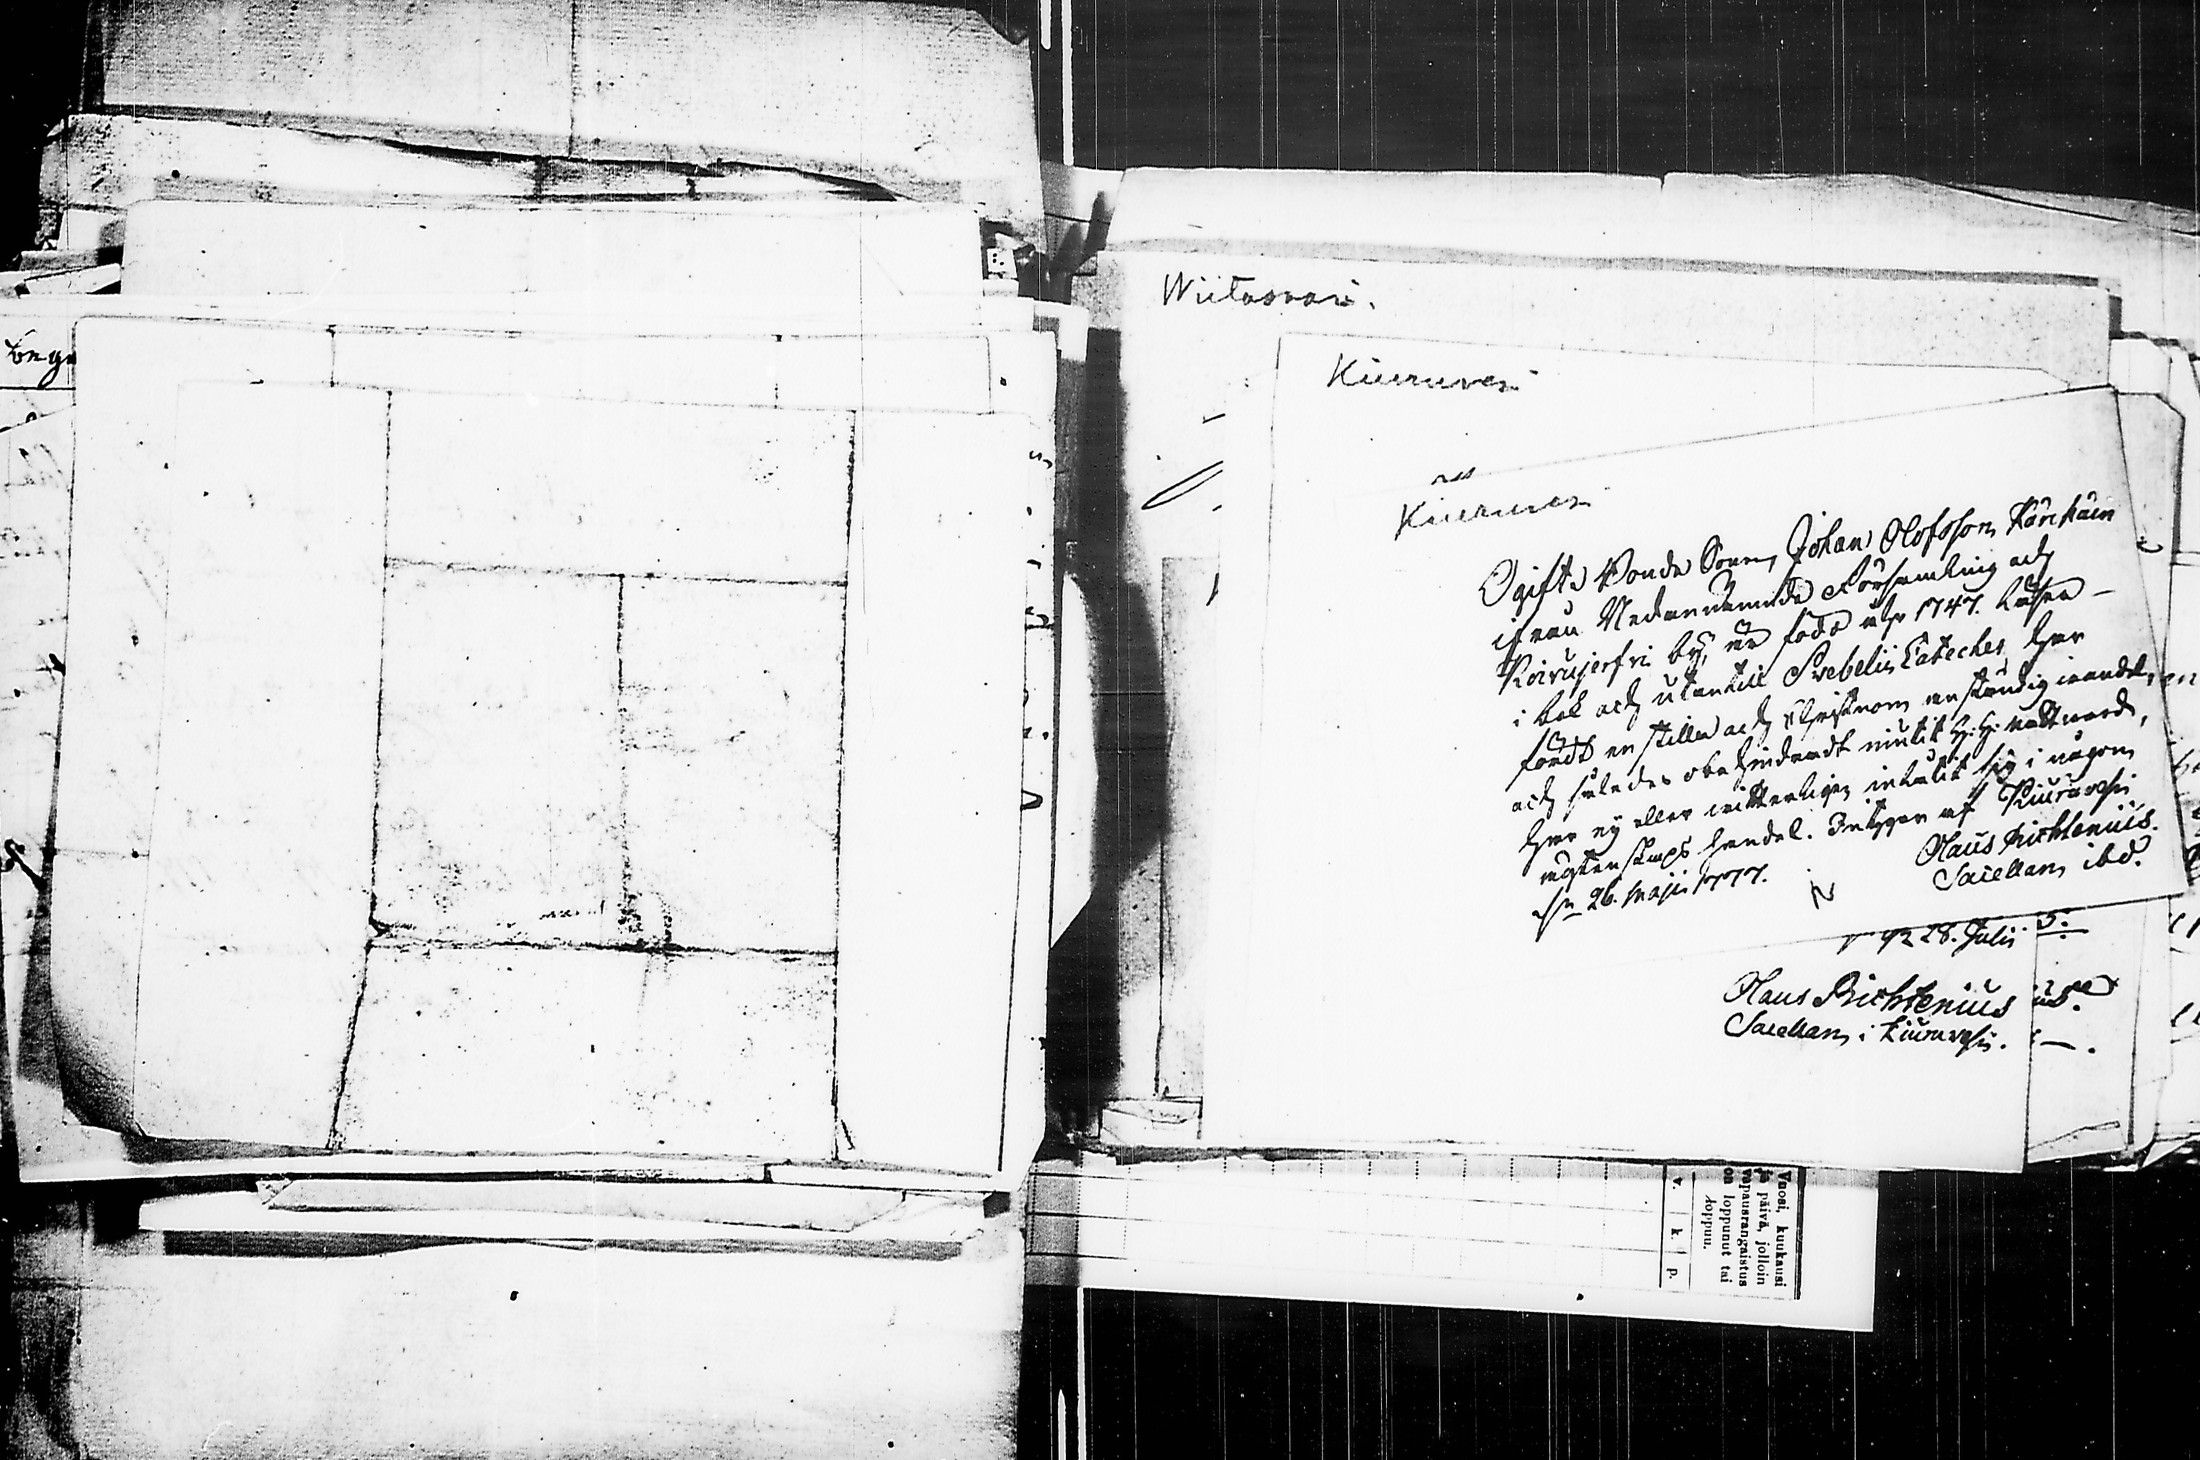 Wiitasaari.
Kiuruvesi
Kiuruvesi
Ogifte Bonde Sonen Johan Olofsson Kärkäin
ifrån Nedannämnde Församling och
Koirujerfvi by, är född åhr 1747. läser
i bok och utantill Svebelii Cateches har
fördt en stilla och Christnom anständig vandel,
och således obehindradt niutit H: H: nattvard,
har ej eller witterligen inlåtit sig i någon
ägtenskaps handel. Intygar af Kiuruvesi
d. 26. Maji 1777.
Olaus Brichtenius.
Sacellan ibd.
92 28. Julii
Olaus Brichtenius
Sacellan i Kiuruvesi.
Vuosi, kuukausi
ja päivä, jolloin
vapausrangaistus
on loppunut tai
loppuu.
v. k. p.